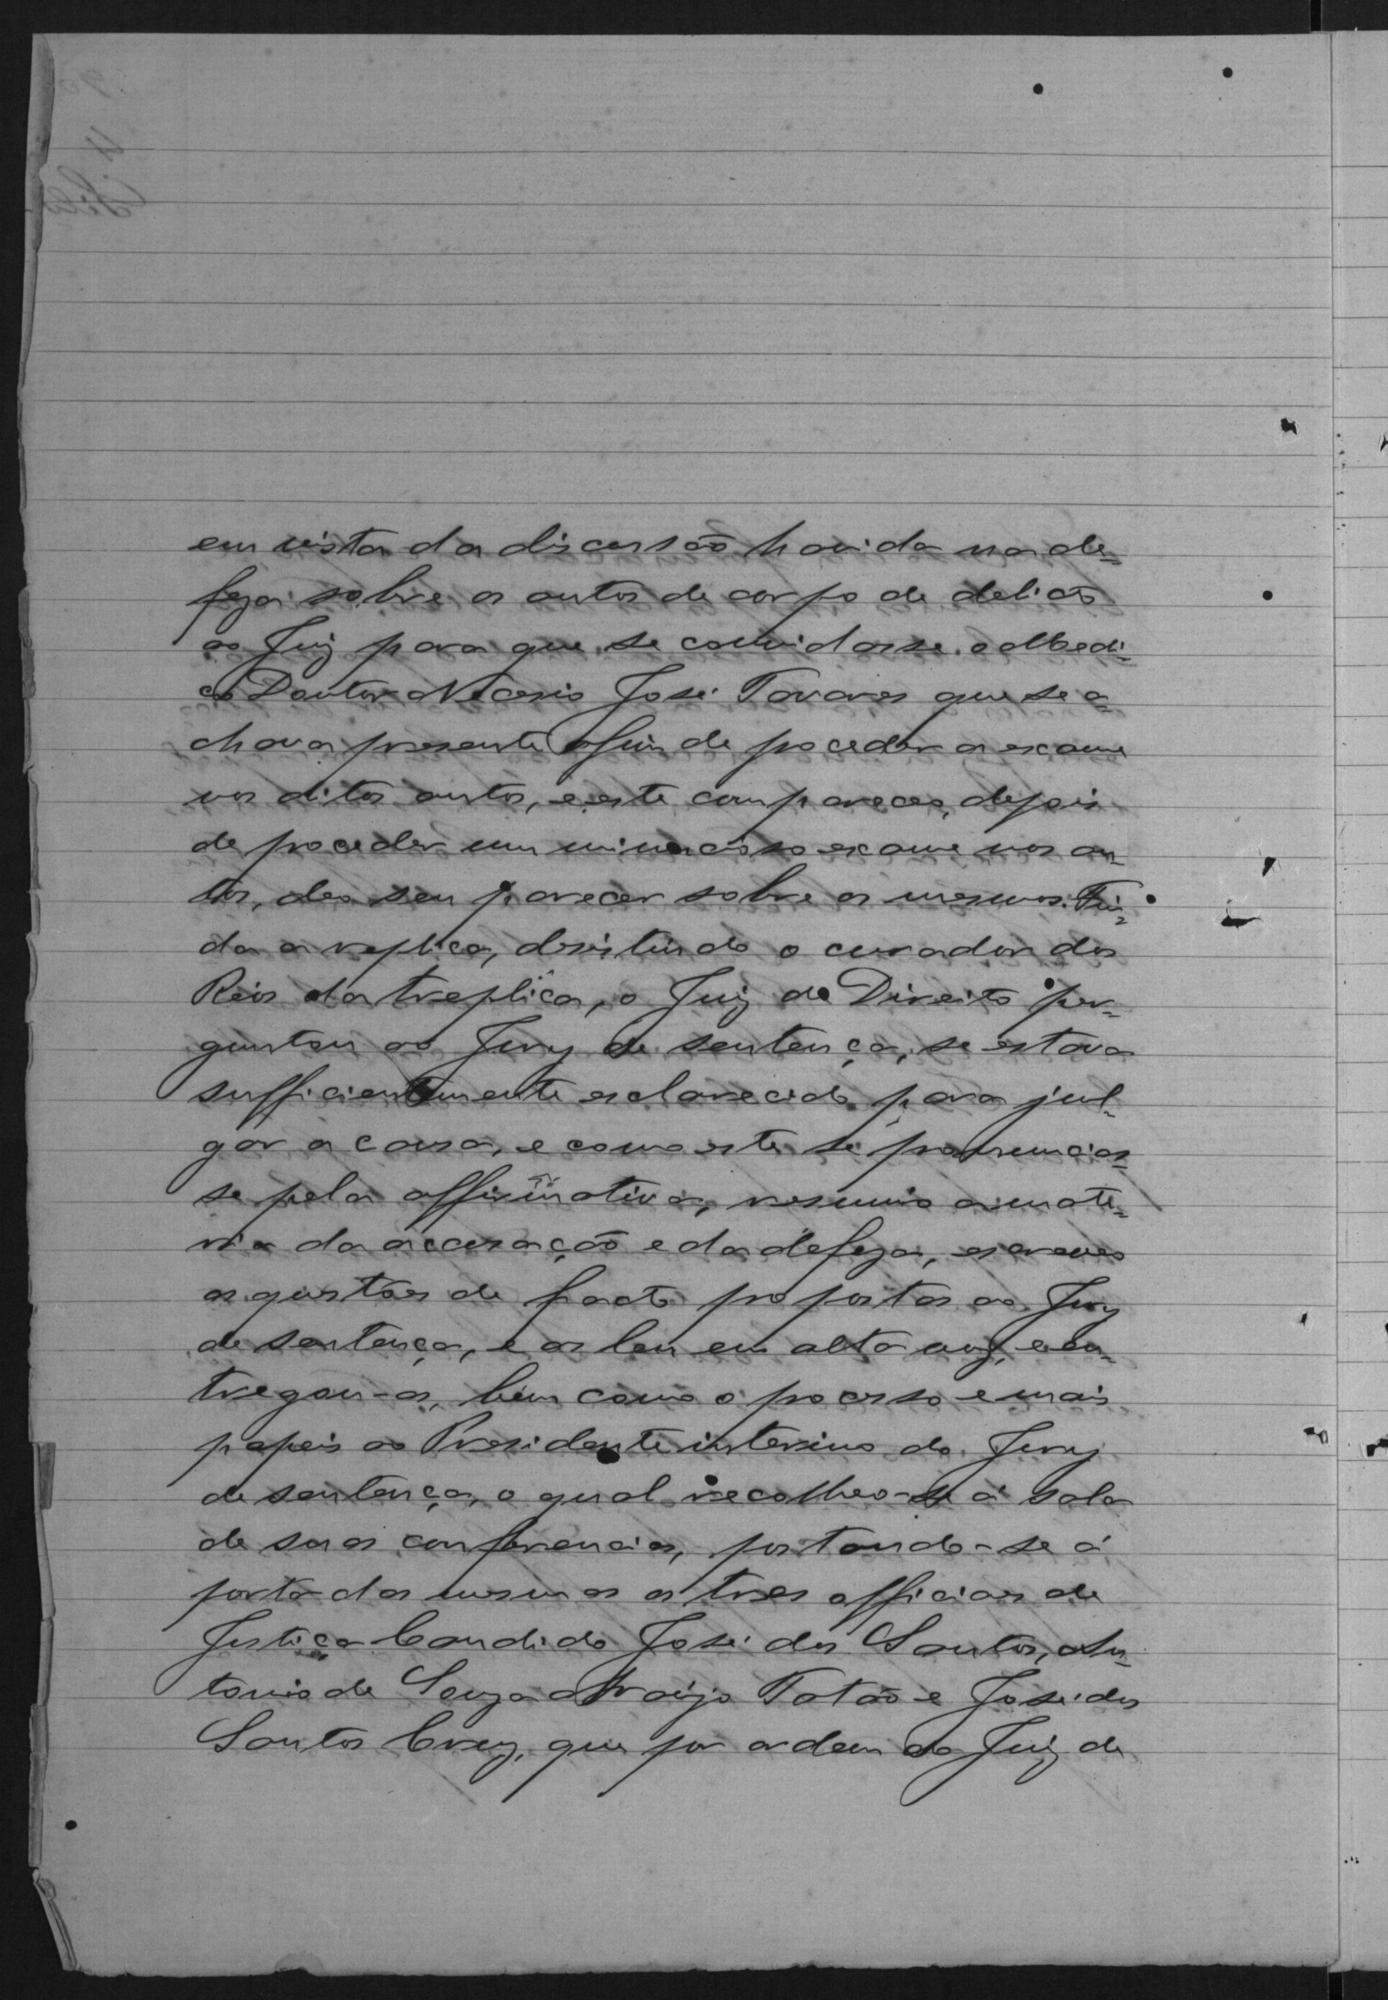 em vista da discussão havida na de-
feza sobre os autos de corpo de delicto
ao Juiz para que se convidasse o Medi-
co Doutor Nicesio José Tavares que se a-
chava presente afim de proceder a exame
nos ditos autos, e este compareceo, depois
de proceder um minucioso exame nos au-
tos, deo seu parecer sobre os mesmos. Fin-
da a replica, desistindo o curador dos
Réos da treplica, o Juiz de Direito per-
guntou ao Jury de sentença, se estava
sufficientemente esclarecido para jul-
gar a causa, e como este se pronuncias-
se pela affirmativa, resumio a mate-
ria da accusação e da defeza, escreveo
as questões de facto propostas ao Jury
de sentença, e as leu em alta voz, e en-
tregou-as, bem como o processo e mais
papeis ao Presidente interino do Jury
de sentença, o qual recolheo-se á sala
de suas conferencias, postando-se á
porta das mesmas os tres officiaes de
Justiça Candido José dos Santos, An-
tonio de Souza Araujo Tatão e José dos
Santos Cruz, que por ordem do Juiz de